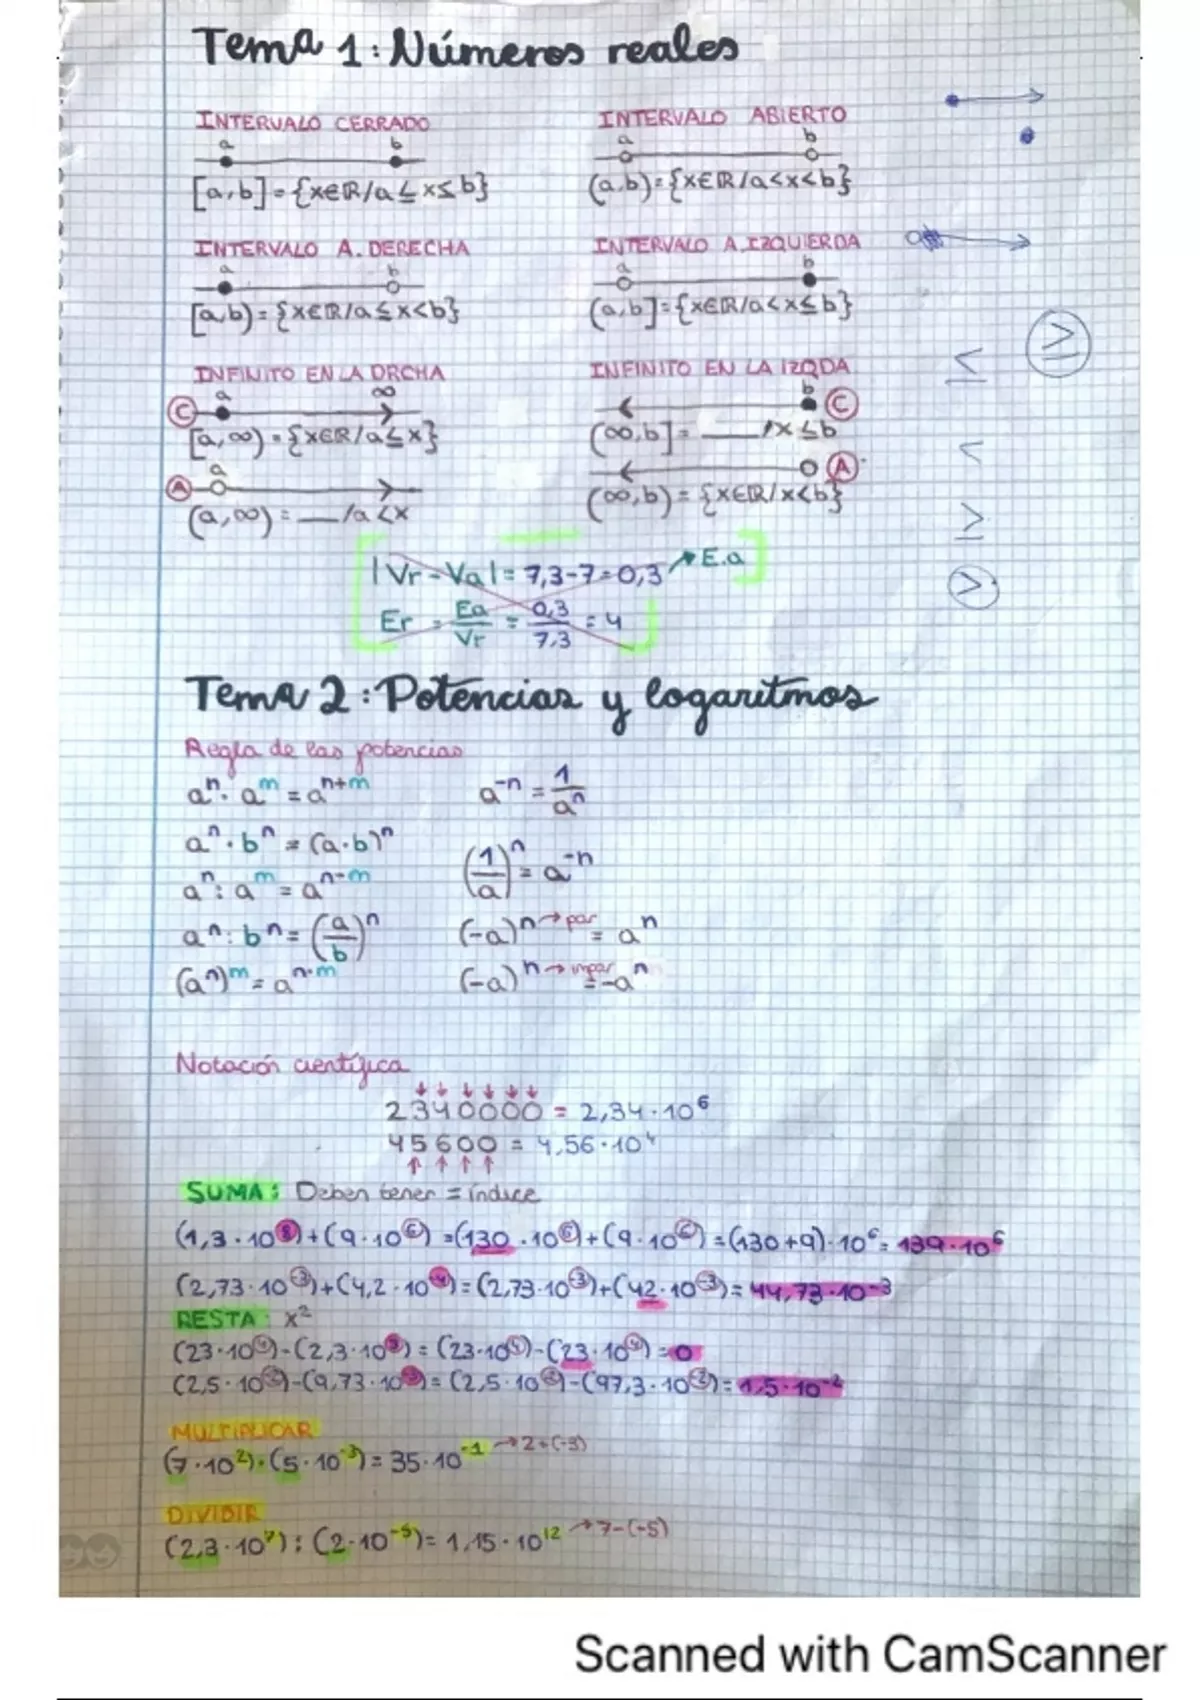 Tema 1: Números reales
INTERVALO CERRADO
a b
[a,b] = {x∈ℝ/a ≤ x ≤ b}
INTERVALO ABIERTO
a b
(a,b) = {x∈ℝ/a<x<b}
INTERVALO A. DERECHA
a b
[a,b) = {x∈ℝ/a ≤ x<b}
INTERVALO A. IZQUIERDA
a b
(a,b] = {x∈ℝ/a<x≤b}
INFINITO EN LA DRCHA
C a ∞
[a,∞) = {x∈ℝ/a ≤ x}
A a
(a,∞) = __ /a < x
INFINITO EN LA IZQDA
b C
(∞,b] = __ /x ≤ b
A
(∞,b) = {x∈ℝ/x<b}
≥
≤
<
≥
>
|Vr - Va| = 7,3-7=0,3 → E.a
Er = Ea/Vr = 0,3/7,3 = 4
Tema 2: Potencias y logaritmos
Regla de las potencias
aⁿ · aᵐ = aⁿ⁺ᵐ
aⁿ · bⁿ = (a·b)ⁿ
aⁿ : aᵐ = aⁿ⁻ᵐ
aⁿ : bⁿ = (a/b)ⁿ
(aⁿ)ᵐ = aⁿ·ᵐ
a⁻ⁿ = 1/aⁿ
(1/a)ⁿ = a⁻ⁿ
(-a)ⁿ → par = aⁿ
(-a)ⁿ → impar = -aⁿ
Notación científica
2340000 = 2,34 · 10⁶
45600 = 4,56 · 10⁴
SUMA: Deben tener = índice
(1,3 · 10⁸)+(9 · 10⁶) = (130 · 10⁶)+(9 · 10⁶) = (130+9) · 10⁶ = 139 · 10⁶
(2,73 · 10⁻³)+(4,2 · 10⁻⁴) = (2,73 · 10⁻³)+(42 · 10⁻³) = 44,73 · 10⁻³
RESTA: x²
(23 · 10⁴)-(2,3 · 10⁵) = (23 · 10⁴)-(23 · 10⁴) = 0
(2,5 · 10⁻²)-(9,73 · 10 ) = (2,5 · 10⁻²)-(97,3 · 10⁻²) = 1,5 · 10⁻²
MULTIPLICAR
(7 · 10²) · (5 · 10⁻³) = 35 · 10⁻¹ → 2+(-3)
DIVIDIR
(2,3 · 10⁷) : (2 · 10⁻⁵) = 1,15 · 10¹² → 7-(-5)
Scanned with CamScanner